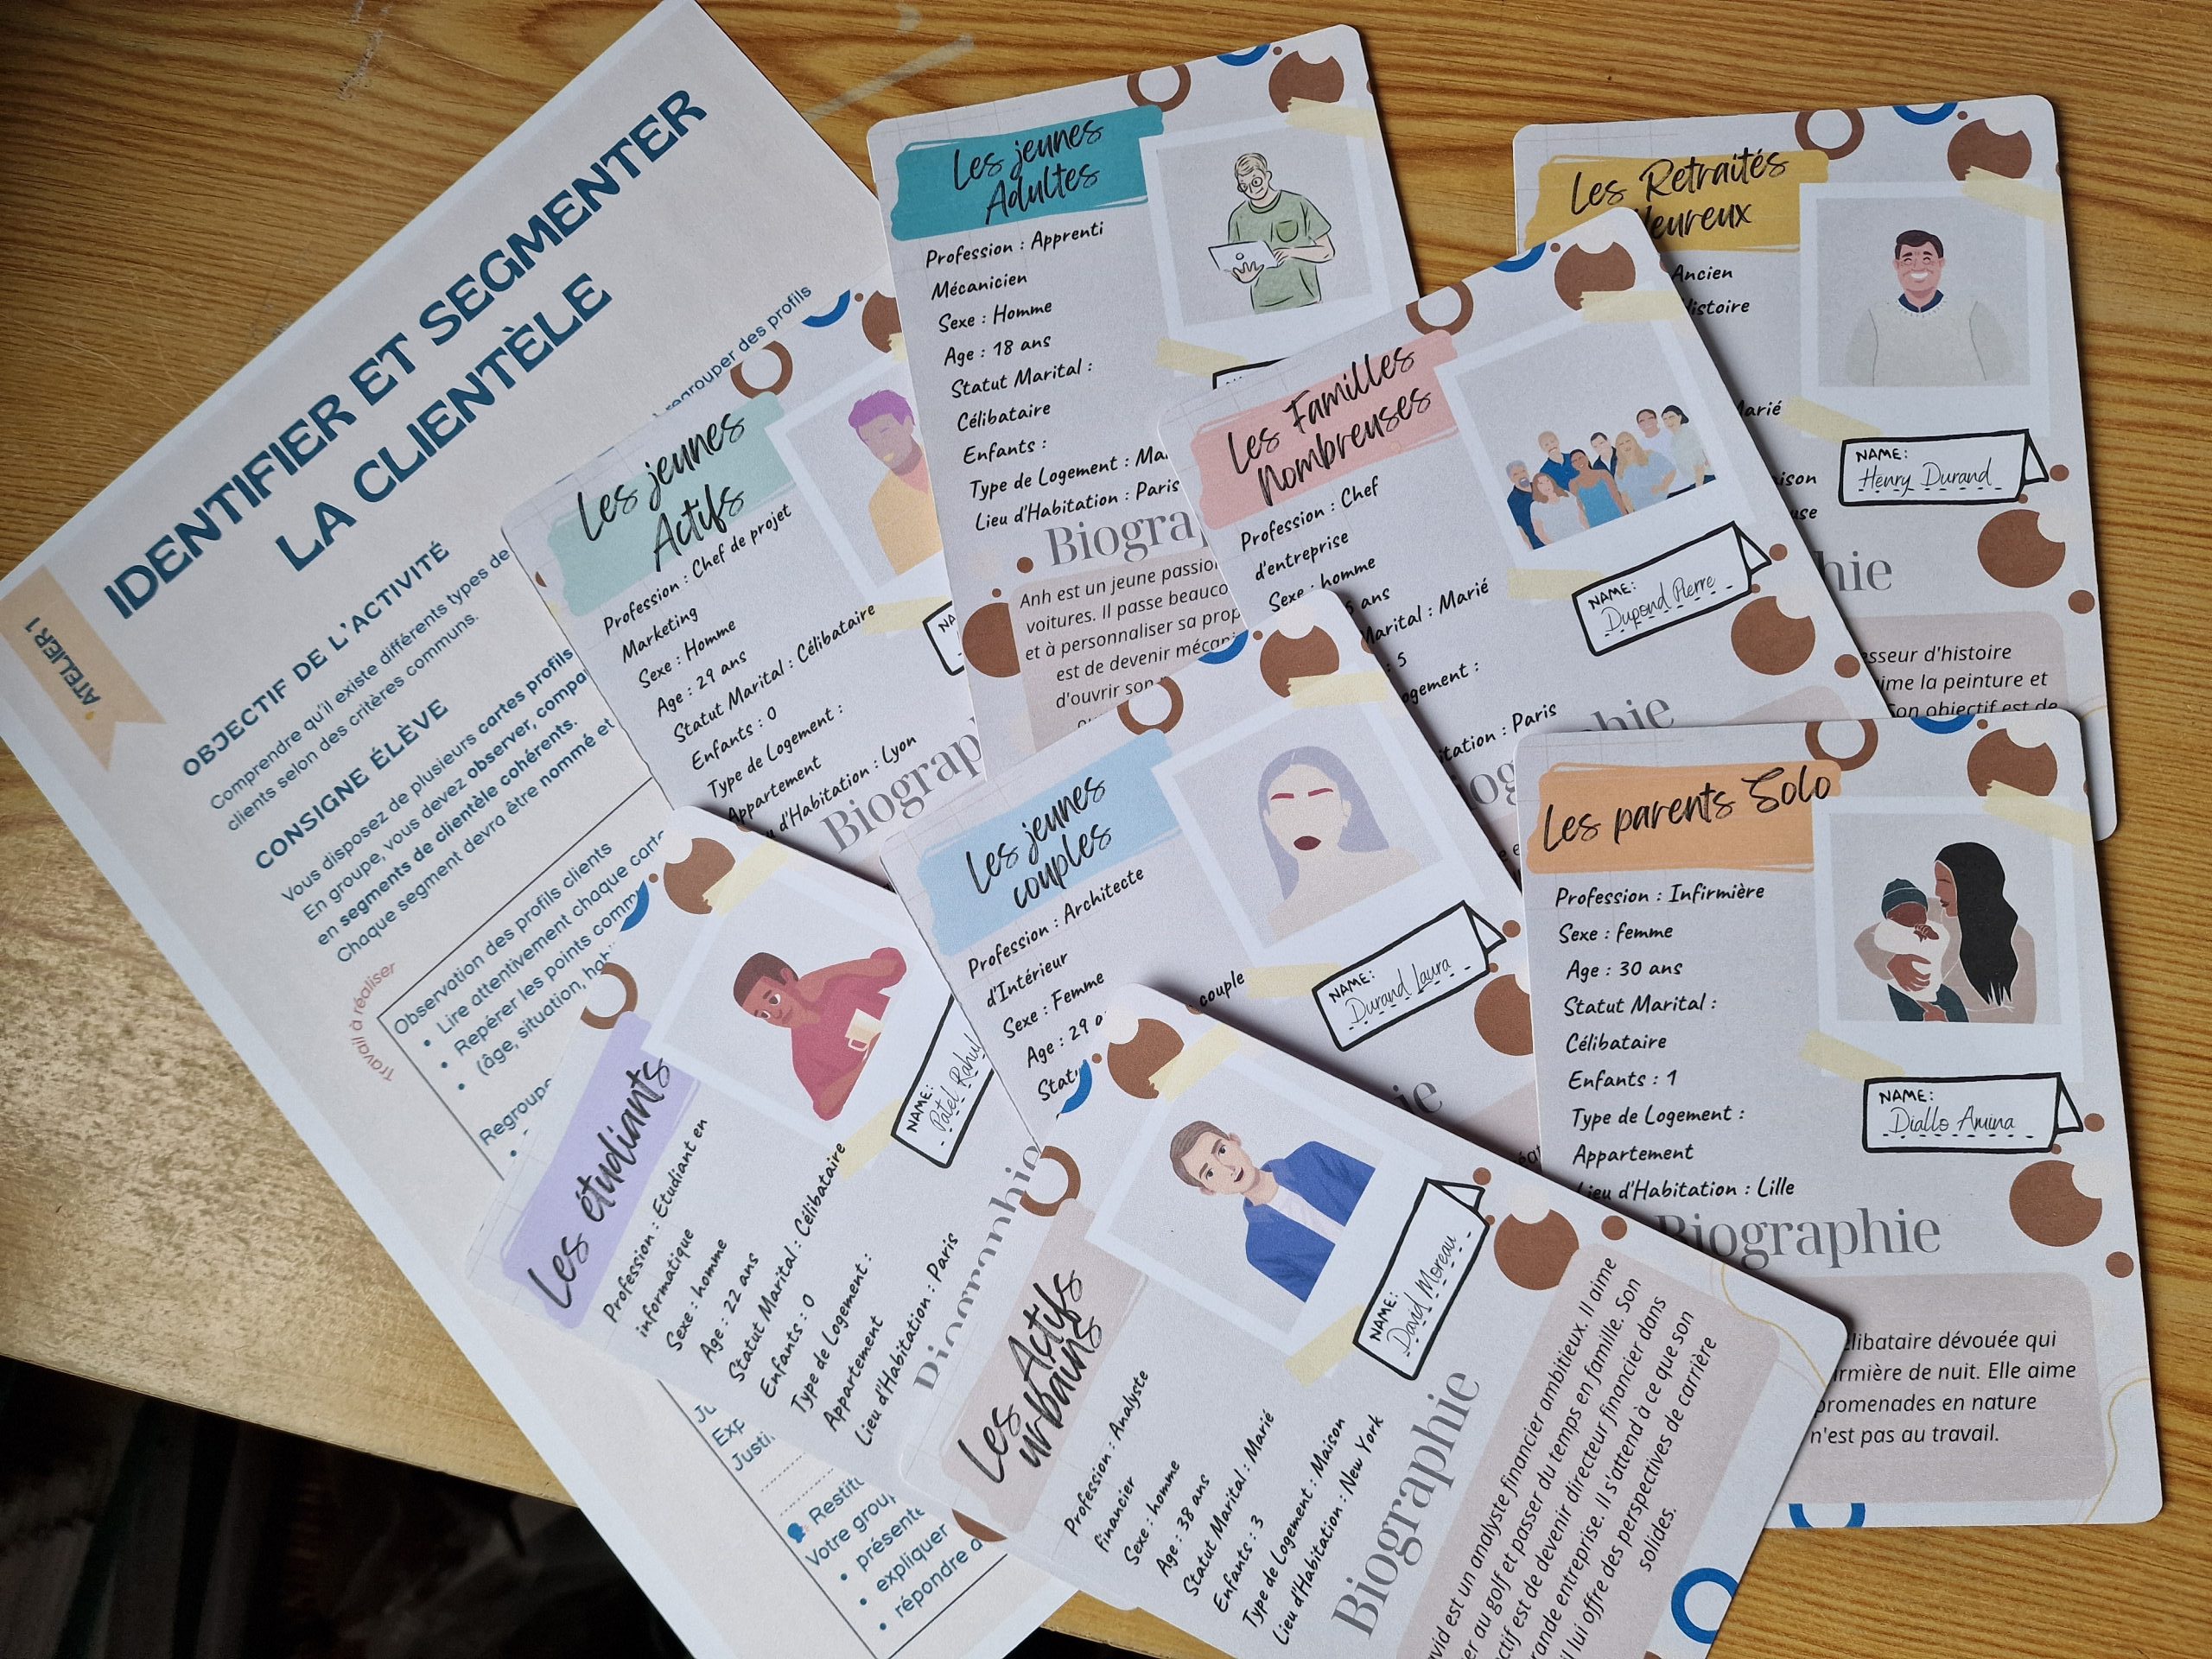 IDENTIFIER ET SEGMENTER
LA CLIENTÈLE
ATELIER 1
OBJECTIF DE L'ACTIVITÉ
Comprendre qu'il existe différents types de
clients selon des critères communs.
regrouper des profils
CONSIGNE ÉLÈVE
Vous disposez de plusieurs cartes profils
En groupe, vous devez observer,
en segments de clientèle cohérents.
Chaque segment devra être nommé et
Travail à réaliser
Observation des profils clients
• Lire attentivement chaque
• Repérer les points
• (âge, situation,
Votre
• expliquer
• répondre
Les jeunes
Adultes
Profession : Apprenti
Mécanicien
Sexe : Homme
Age : 18 ans
Statut Marital :
Célibataire
Enfants :
Type de Logement :
Lieu d'Habitation : Paris
Anh est un jeune
voitures. Il passe
et à personnaliser sa
est de devenir
d'ouvrir son
Les Retraités
Heureux
Ancien
Histoire
Marié
NAME:
Henry Durand
d'histoire
la peinture et
Son objectif est de
Les jeunes
Actifs
Profession : Chef de projet
Marketing
Sexe : Homme
Age : 29 ans
Statut Marital : Célibataire
Enfants : 0
Type de Logement :
Appartement
d'Habitation : Lyon
Les Familles
Nombreuses
Profession : Chef
d'entreprise
Sexe : homme
ans
Marital : Marié
: 5
Logement :
Paris
NAME:
Dupond Pierre
Les jeunes
couples
Profession : Architecte
d'Intérieur
Sexe : Femme
Age : 29
couple
NAME:
Durand Laura
Les parents Solo
Profession : Infirmière
Sexe : femme
Age : 30 ans
Statut Marital :
Célibataire
Enfants : 1
Type de Logement :
Appartement
Lieu d'Habitation : Lille
NAME:
Diallo Amina
Biographie
célibataire dévouée qui
infirmière de nuit. Elle aime
promenades en nature
n'est pas au travail.
Les étudiants
Profession : Etudiant en
informatique
Sexe : homme
Age : 22 ans
Statut Marital : Célibataire
Enfants : 0
Type de Logement :
Appartement
Lieu d'Habitation : Paris
NAME:
Patel Rahul
Biographie
Les Actifs
urbains
Profession : Analyste
financier
Sexe : homme
Age : 38 ans
Statut Marital : Marié
Enfants : 3
Type de Logement : Maison
Lieu d'Habitation : New York
NAME:
David Moreau
Biographie
David est un analyste financier ambitieux. Il aime
au golf et passer du temps en famille. Son
est de devenir directeur financier dans
grande entreprise. Il s'attend à ce que son
lui offre des perspectives de carrière
solides.